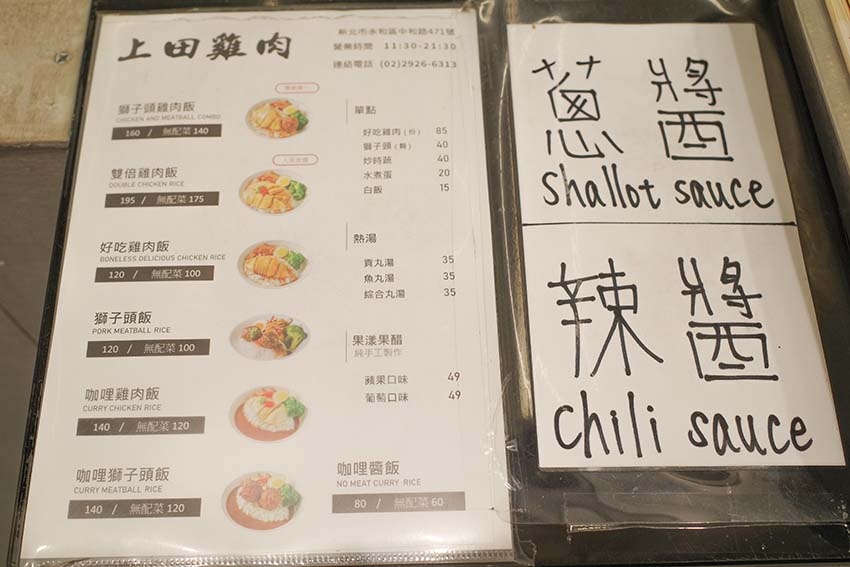 上田雞肉
新北市永和區中和路471號
營業時間 11:30-21:30
連絡電話 (02)2926-6313
獅子頭雞肉飯
CHICKEN AND MEATBALL COMBO
160 / 無配菜 140
雙倍雞肉飯
DOUBLE CHICKEN RICE
195 / 無配菜 175
好吃雞肉飯
BONELESS DELICIOUS CHICKEN RICE
120 / 無配菜 100
獅子頭飯
PORK MEATBALL RICE
120 / 無配菜 100
咖哩雞肉飯
CURRY CHICKEN RICE
140 / 無配菜 120
咖哩獅子頭飯
CURRY MEATBALL RICE
140 / 無配菜 120
單點
好吃雞肉(份) 85
獅子頭(顆) 40
炒時蔬 40
水煮蛋 20
白飯 15
熱湯
貢丸湯 35
魚丸湯 35
綜合丸湯 35
果漾果醋
純手工製作
蘋果口味 49
葡萄口味 49
咖哩醬飯
NO MEAT CURRY RICE
80 / 無配菜 60
蔥醬
shallot sauce
辣醬
chili sauce